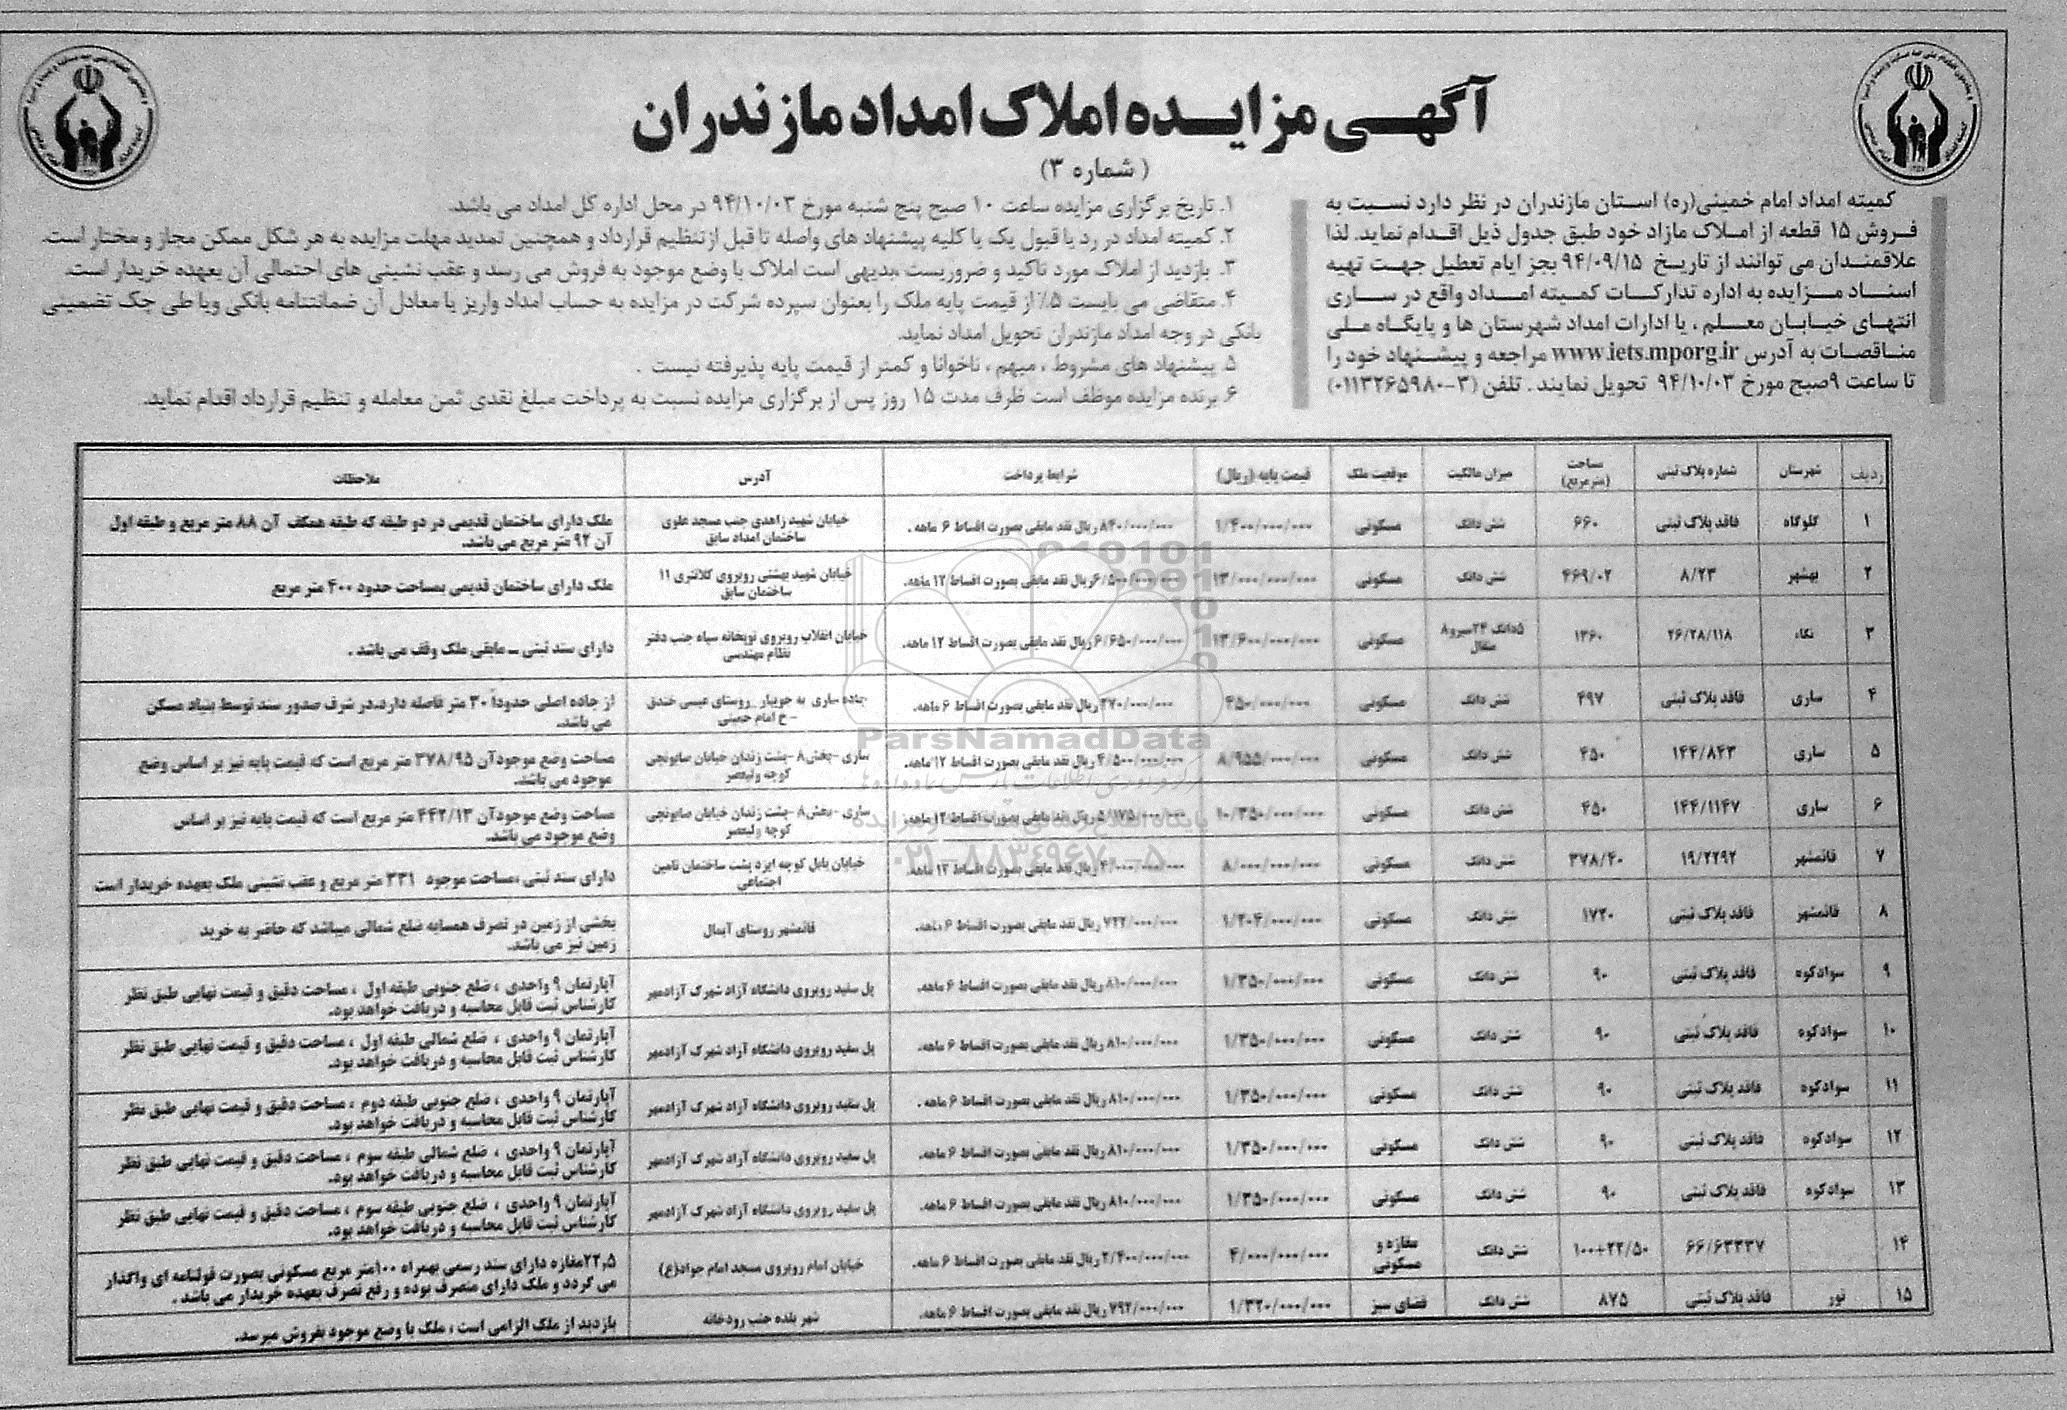 آگهی مزایده املاک امداد مازندران
(شماره ۳)
کمیته امداد امام خمینی(ره) استان مازندران در نظر دارد نسبت به
فروش ۱۵ قطعه از املاک مازاد خود طبق جدول ذیل اقدام نماید. لذا
علاقمندان می توانند از تاریخ ۹۴/۰۹/۱۵ بجز ایام تعطیل جهت تهیه
اسناد مزایده به اداره تدارکات کمیته امداد واقع در ساری
انتهای خیابان معلم ، یا ادارات امداد شهرستان ها و پایگاه ملی
مناقصات به آدرس www.iets.mporg.ir مراجعه و پیشنهاد خود را
تا ساعت ۹صبح مورخ ۹۴/۱۰/۰۳ تحویل نمایند . تلفن (۳-۰۱۱۳۲۶۵۹۸۰)
۱. تاریخ برگزاری مزایده ساعت ۱۰ صبح پنج شنبه مورخ ۹۴/۱۰/۰۳ در محل اداره کل امداد می باشد.
۲. کمیته امداد در رد یا قبول یک یا کلیه پیشنهاد های واصله تا قبل از تنظیم قرارداد و همچنین تمدید مهلت مزایده به هر شکل ممکن مجاز و مختار است.
۳. بازدید از املاک مورد تاکید و ضروریست ،بدیهی است املاک با وضع موجود به فروش می رسد و عقب نشینی های احتمالی آن بعهده خریدار است.
۴. متقاضی می بایست ۵٪ از قیمت پایه ملک را بعنوان سپرده شرکت در مزایده به حساب امداد واریز یا معادل آن ضمانتنامه بانکی ویا طی چک تضمینی
بانکی در وجه امداد مازندران تحویل امداد نماید.
۵. پیشنهاد های مشروط ، مبهم ، ناخوانا و کمتر از قیمت پایه پذیرفته نیست .
۶. برنده مزایده موظف است ظرف مدت ۱۵ روز پس از برگزاری مزایده نسبت به پرداخت مبلغ نقدی ثمن معامله و تنظیم قرارداد اقدام نماید.
ردیف شهرستان شماره پلاک ثبتی مساحت (مترمربع) میزان مالکیت موقعیت ملک قیمت پایه (ریال) شرایط پرداخت آدرس ملاحظات
۱ گلوگاه فاقد پلاک ثبتی ۶۶۰ شش دانگ مسکونی ۱/۴۰۰/۰۰۰/۰۰۰ ۸۴۰/۰۰۰/۰۰۰ ریال نقد مابقی بصورت اقساط ۶ ماهه . خیابان شهید زاهدی جنب مسجد علوی ساختمان امداد سابق ملک دارای ساختمان قدیمی در دو طبقه که طبقه همکف آن ۸۸ متر مربع و طبقه اول آن ۹۲ متر مربع می باشد.
۲ بهشهر ۸/۲۳ ۴۶۹/۰۲ شش دانگ مسکونی ۱۳/۰۰۰/۰۰۰/۰۰۰ ۶/۵۰۰/۰۰۰/۰۰۰ریال نقد مابقی بصورت اقساط ۱۲ ماهه. خیابان شهید بهشتی روبروی کلانتری ۱۱ ساختمان سابق ملک دارای ساختمان قدیمی بمساحت حدود ۴۰۰ متر مربع
۳ نکاء ۲۶/۲۸/۱۱۸ ۱۳۶۰ ۵دانگ ۲۴سیرو۸ مثقال مسکونی ۱۳/۶۰۰/۰۰۰/۰۰۰ ۶/۶۵۰/۰۰۰/۰۰۰ریال نقد مابقی بصورت اقساط ۱۲ ماهه. خیابان انقلاب روبروی توپخانه سپاه جنب دفتر نظام مهندسی دارای سند ثبتی ــ مابقی ملک وقف می باشد .
۴ ساری فاقد پلاک ثبتی ۴۹۷ شش دانگ مسکونی ۴۵۰/۰۰۰/۰۰۰ ۲۷۰/۰۰۰/۰۰۰ریال نقد مابقی بصورت اقساط ۶ ماهه. جاده ساری به جویبار _روستای عیسی خندق – خ امام خمینی از جاده اصلی حدوداً ۳۰ متر فاصله دارد.در شرف صدور سند توسط بنیاد مسکن می باشد.
۵ ساری ۱۴۴/۸۴۳ ۴۵۰ شش دانگ مسکونی ۸/۹۵۵/۰۰۰/۰۰۰ ۴/۵۰۰/۰۰۰/۰۰۰ ریال نقد مابقی بصورت اقساط ۱۲ ماهه. ساری -بخش۸ -پشت زندان خیابان صابونچی کوچه ولیعصر مساحت وضع موجودآن ۳۷۸/۹۵ متر مربع است که قیمت پایه نیز بر اساس وضع موجود می باشد.
۶ ساری ۱۴۴/۱۱۴۷ ۴۵۰ شش دانگ مسکونی ۱۰/۳۵۰/۰۰۰/۰۰۰ ۵/۱۷۵/۰۰۰/۰۰۰ ریال نقد مابقی بصورت اقساط ۱۲ ماهه. ساری -بخش۸ -پشت زندان خیابان صابونچی کوچه ولیعصر مساحت وضع موجودآن ۴۴۲/۱۳ متر مربع است که قیمت پایه نیز بر اساس وضع موجود می باشد.
۷ قائمشهر ۱۹/۲۲۹۲ ۳۷۸/۴۰ شش دانگ مسکونی ۸/۰۰۰/۰۰۰/۰۰۰ ۴/۰۰۰/۰۰۰/۰۰۰ ریال نقد مابقی بصورت اقساط ۱۲ ماهه. خیابان بابل کوچه ایزد پشت ساختمان تامین اجتماعی دارای سند ثبتی ،مساحت موجود ۳۳۱ متر مربع و عقب نشینی ملک بعهده خریدار است
۸ قائمشهر فاقد پلاک ثبتی ۱۷۲۰ شش دانگ مسکونی ۱/۲۰۴/۰۰۰/۰۰۰ ۷۲۲/۰۰۰/۰۰۰ ریال نقد مابقی بصورت اقساط ۶ ماهه. قائمشهر روستای آبمال بخشی از زمین در تصرف همسایه ضلع شمالی میباشد که حاضر به خرید زمین نیز می باشد.
۹ سوادکوه فاقد پلاک ثبتی ۹۰ شش دانگ مسکونی ۱/۳۵۰/۰۰۰/۰۰۰ ۸۱۰/۰۰۰/۰۰۰ ریال نقد مابقی بصورت اقساط ۶ ماهه. پل سفید روبروی دانشگاه آزاد شهرک آزادمهر آپارتمان ۹ واحدی ، ضلع جنوبی طبقه اول ، مساحت دقیق و قیمت نهایی طبق نظر کارشناس ثبت قابل محاسبه و دریافت خواهد بود.
۱۰ سوادکوه فاقد پلاک ثبتی ۹۰ شش دانگ مسکونی ۱/۳۵۰/۰۰۰/۰۰۰ ۸۱۰/۰۰۰/۰۰۰ ریال نقد مابقی بصورت اقساط ۶ ماهه. پل سفید روبروی دانشگاه آزاد شهرک آزادمهر آپارتمان ۹ واحدی ، ضلع شمالی طبقه اول ، مساحت دقیق و قیمت نهایی طبق نظر کارشناس ثبت قابل محاسبه و دریافت خواهد بود.
۱۱ سوادکوه فاقد پلاک ثبتی ۹۰ شش دانگ مسکونی ۱/۳۵۰/۰۰۰/۰۰۰ ۸۱۰/۰۰۰/۰۰۰ ریال نقد مابقی بصورت اقساط ۶ ماهه . پل سفید روبروی دانشگاه آزاد شهرک آزادمهر آپارتمان ۹ واحدی ، ضلع جنوبی طبقه دوم ، مساحت دقیق و قیمت نهایی طبق نظر کارشناس ثبت قابل محاسبه و دریافت خواهد بود.
۱۲ سوادکوه فاقد پلاک ثبتی ۹۰ شش دانگ مسکونی ۱/۳۵۰/۰۰۰/۰۰۰ ۸۱۰/۰۰۰/۰۰۰ ریال نقد مابقی بصورت اقساط ۶ ماهه. پل سفید روبروی دانشگاه آزاد شهرک آزادمهر آپارتمان ۹ واحدی ، ضلع شمالی طبقه سوم ، مساحت دقیق و قیمت نهایی طبق نظر کارشناس ثبت قابل محاسبه و دریافت خواهد بود.
۱۳ سوادکوه فاقد پلاک ثبتی ۹۰ شش دانگ مسکونی ۱/۳۵۰/۰۰۰/۰۰۰ ۸۱۰/۰۰۰/۰۰۰ ریال نقد مابقی بصورت اقساط ۶ ماهه. پل سفید روبروی دانشگاه آزاد شهرک آزادمهر آپارتمان ۹ واحدی ، ضلع جنوبی طبقه سوم ، مساحت دقیق و قیمت نهایی طبق نظر کارشناس ثبت قابل محاسبه و دریافت خواهد بود.
۱۴ ۶۶/۶۳۳۳۷ ۱۰۰+۲۲/۵۰ شش دانگ مغازه و مسکونی ۴/۰۰۰/۰۰۰/۰۰۰ ۲/۴۰۰/۰۰۰/۰۰۰ ریال نقد مابقی بصورت اقساط ۶ ماهه. خیابان امام روبروی مسجد امام جواد(ع) ۲۲,۵مغازه دارای سند رسمی بهمراه ۱۰۰متر مربع مسکونی بصورت قولنامه ای واگذار می گردد و ملک دارای متصرف بوده و رفع تصرف بعهده خریدار می باشد .
۱۵ نور فاقد پلاک ثبتی ۸۷۵ شش دانگ فضای سبز ۱/۳۲۰/۰۰۰/۰۰۰ ۷۹۲/۰۰۰/۰۰۰ ریال نقد مابقی بصورت اقساط ۶ ماهه. شهر بلده جنب رودخانه بازدید از ملک الزامی است ، ملک با وضع موجود بفروش میرسد.
ParsNamadData
۰۲۱-۸۸۳۴۹۶۷۰-۵